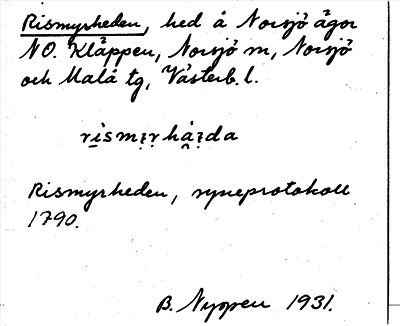 Rismyrheden, hed å Norsjö ägor
NO. Kläppen, Norsjö m, Norsjö
och Malå tg, Västerb. l.
Rismyrheden, syneprotokoll
1790.
B. Nyppen 1931.